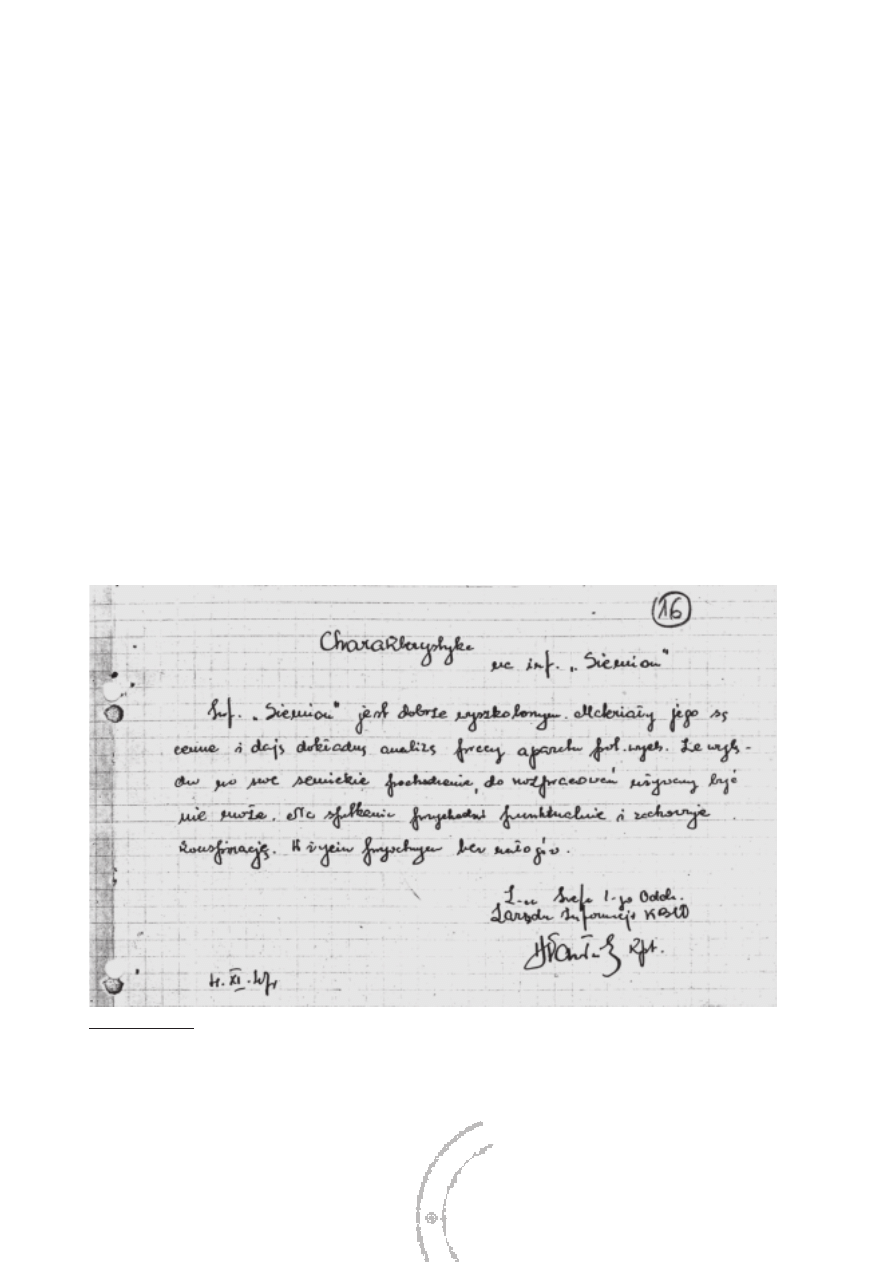 16
Charakterystyka
na inf. „Siemion"
Inf. „Siemion" jest dobrze wyszkolonym. Materiały jego są
cenne i dają dokładną analizę pracy aparatu pol.wych. Ze wzglę-
du na swe semickie pochodzenie, do rozpracowań używany być
nie może. Na spotkania przychodzi punktualnie i zachowuje
konspirację. W życiu prywatnym bez nałogów.
Z-ca Szefa I-go Oddz.
Zarządu Informacji KBW
kpt.
XI